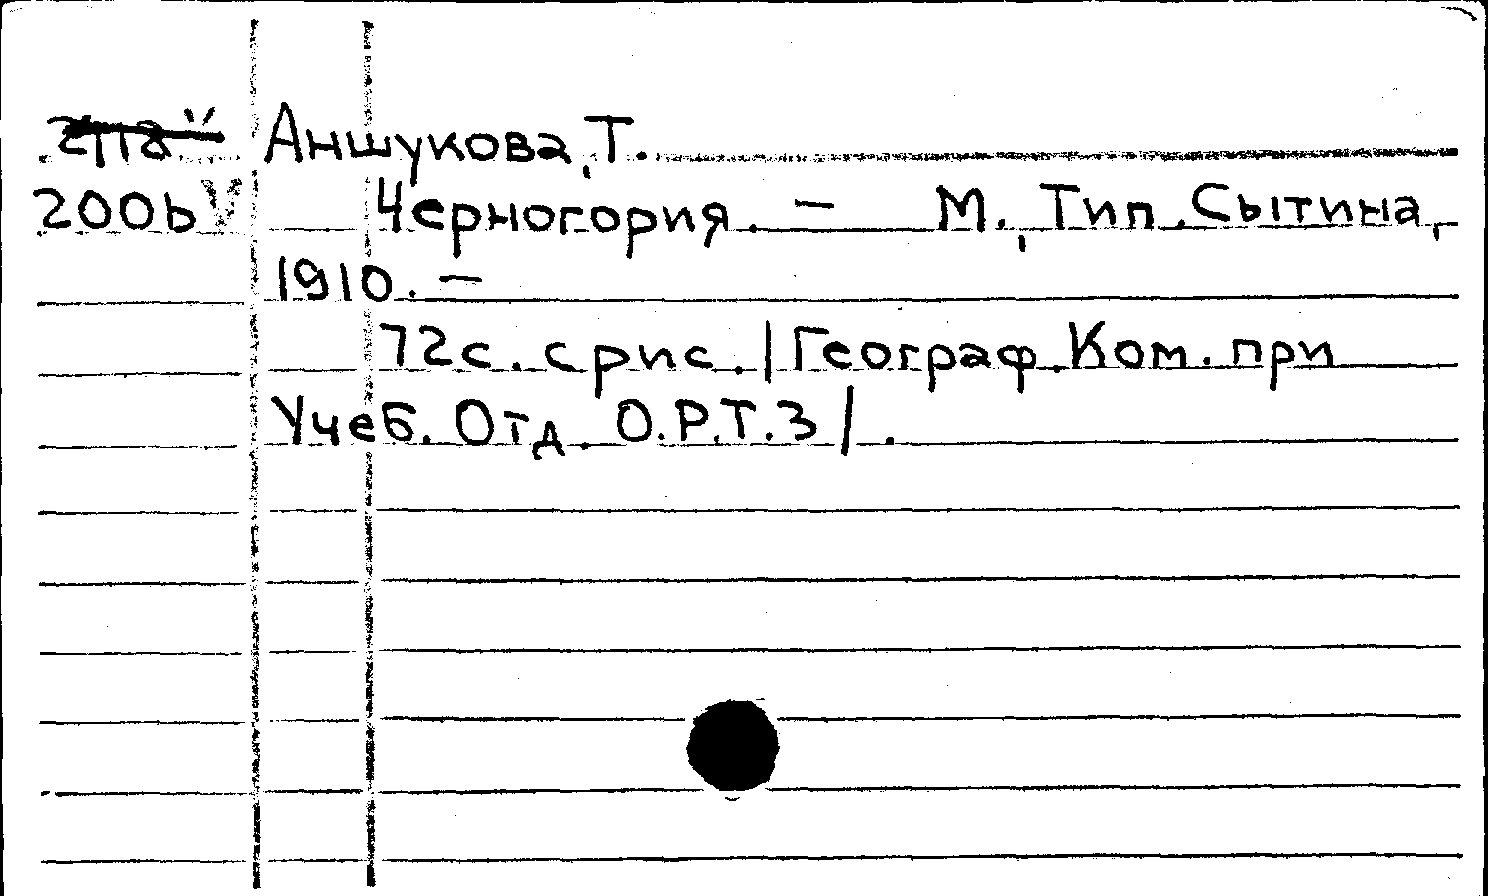 Аншукова, Т.
200b V Черногория. — М., Тип. Сытина,
1910. —
72с. с рис. /Географ. Ком. при
Учеб. Отд. О.Р.Т.З/.